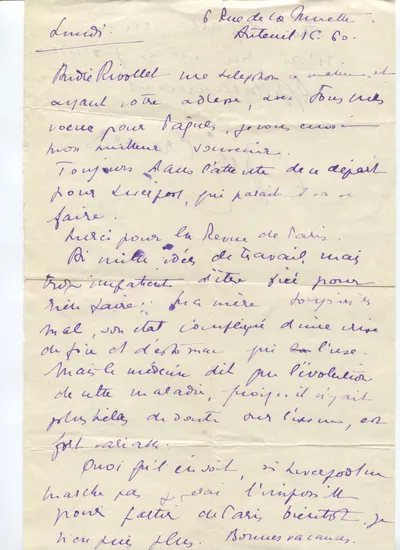 6 Rue de la Muette
Lundi. Auteuil 15.60.
André Rivollet me téléphone ce matin, et
ayant votre adresse, avec tous mes
vœux pour Pâques, je vous envoie
mon meilleur souvenir.
Toujours dans l'attente de ce départ
pour Liverpool, qui paraît-il va se
faire.
Merci pour la Revue de Paris.
Ai mille idées de travail, mais
trop impatient d'être fixé pour
rien faire. Ma mère toujours
mal, son état compliqué d'une crise
de foie et d'estomac qui l'use.
Mais le médecin dit que l'évolution
de cette maladie, puisqu'il n'y ayant
plus hélas de doute sur l'issue, est
fort variable.
Quoi qu'il en soit, si Liverpool ne
marche pas, je ferai l'impossible
pour partir de Paris bientôt. Je
n'en puis plus. Bonnes vacances.